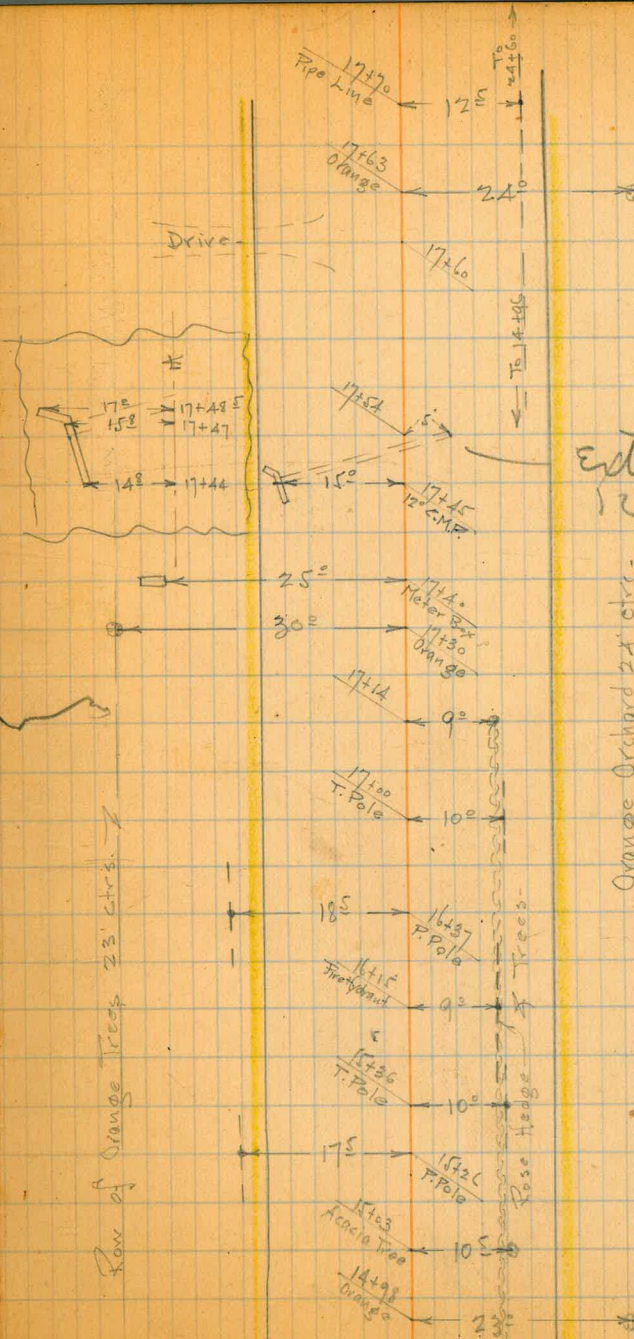 To
24+60
17+70
Pipe Line
12⁵
17+63
Orange
24⁰
Drive
17+60
To 14+96
17+54
5'
17⁰
17+48⁵
15⁸
17+47
14⁸
17+44
15⁰
17+45
12" C.M.P.
25⁰
17+40
Meter Box
30⁰
17+30
Orange
17+14
9⁰
17+00
T. Pole
10⁰
18⁵
16+37
P. Pole
16+15
Fire Hydrant
9⁰
15+36
T. Pole
10⁰
17⁵
15+26
P. Pole
15+03
Acacia Tree
10⁵
14+98
Orange
Row of Orange Trees 23' ctrs.
Rose Hedge & Trees
Orange Orchard 22' ctrs.